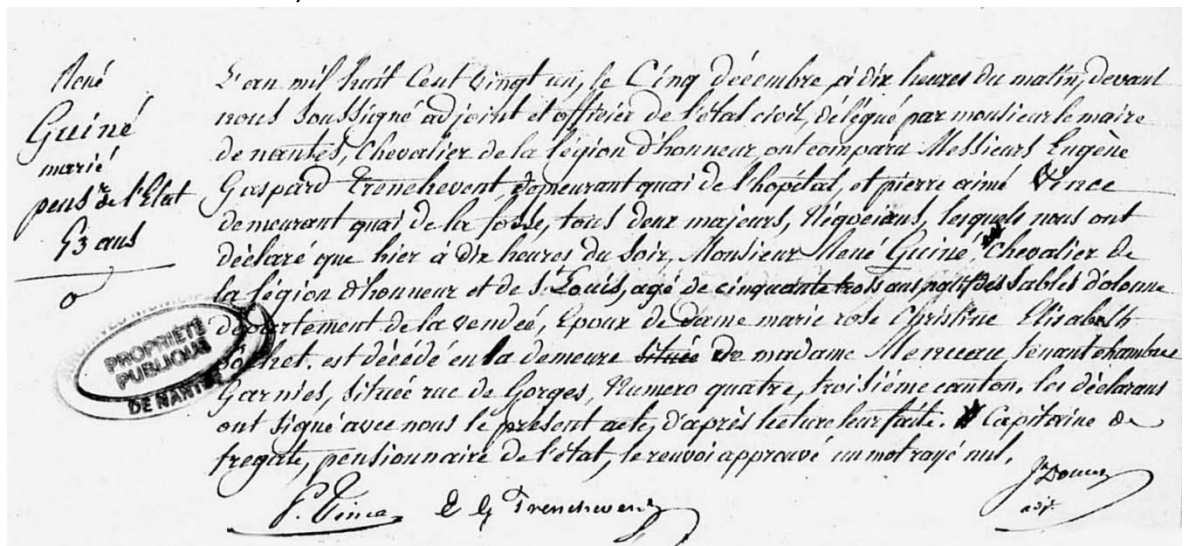 René
Guiné
marié
pens.re de l'Etat
53 ans
L'an mil huit Cent vingt un, le Cinq décembre à dix heures du matin, devant
nous Soussigné adjoint et officier de l'état civil, délégué par monsieur le maire
de nantes, Chevalier de la légion d'honneur ont comparu Messieurs Eugène
Gaspard Trenchevent, demeurant quai de l'hopital, et pierre aimé Vince
demeurant quai de la fosse, tous deux majeurs, Négocians, lesquels nous ont
déclaré que hier à dix heures du Soir, Monsieur René Guiné, Chevalier de
la légion d'honneur et de S.t Louis, agé de cinquante trois ans, natif des Sables d'olonne
département de la vendeé, Epoux de Dame marie rose Christine Elisabeth
est décédé en la demeure située de madame Menuau tenant chambres
Garnies, Située rue de Gorges, Numero quatre, troisiéme canton. les déclarans
ont Signé avec nous le présent acte, d'après lecture leur faite. Capitaine de
fregate, pensionnaire de l'état, le renvoi approuvé un mot rayé nul.
P. Vince E G Trenchevent
adj.t
PROPRIÉTÉ
PUBLIQUE
DE NANTES